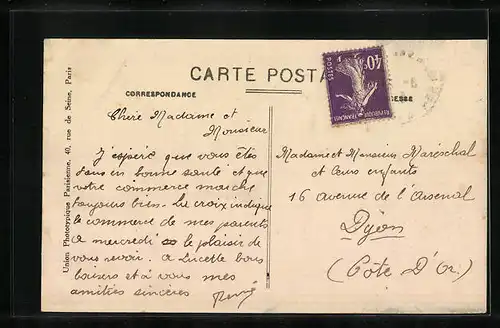 CARTE POSTA
CORRESPONDANCE
ESSE
Chère Madame et
Monsieur
J'espère que vous êtes
tous en bonne santé et que
votre commerce marche
toujours bien. La croix indique
le commerce de mes parents
a mercredi le plaisir de
vous revoir. a Lucette bons
baisers et à vous mes
amitiés sincères
René
Madame et Monsieur Maréschal
et leurs enfants
16 avenue de l'Arsenal
Dijon
(Côte D'Or.)
Union Phototypique Parisienne, 40, rue de Seine, Paris
40c
POSTES
REPUBLIQUE FRANÇAISE